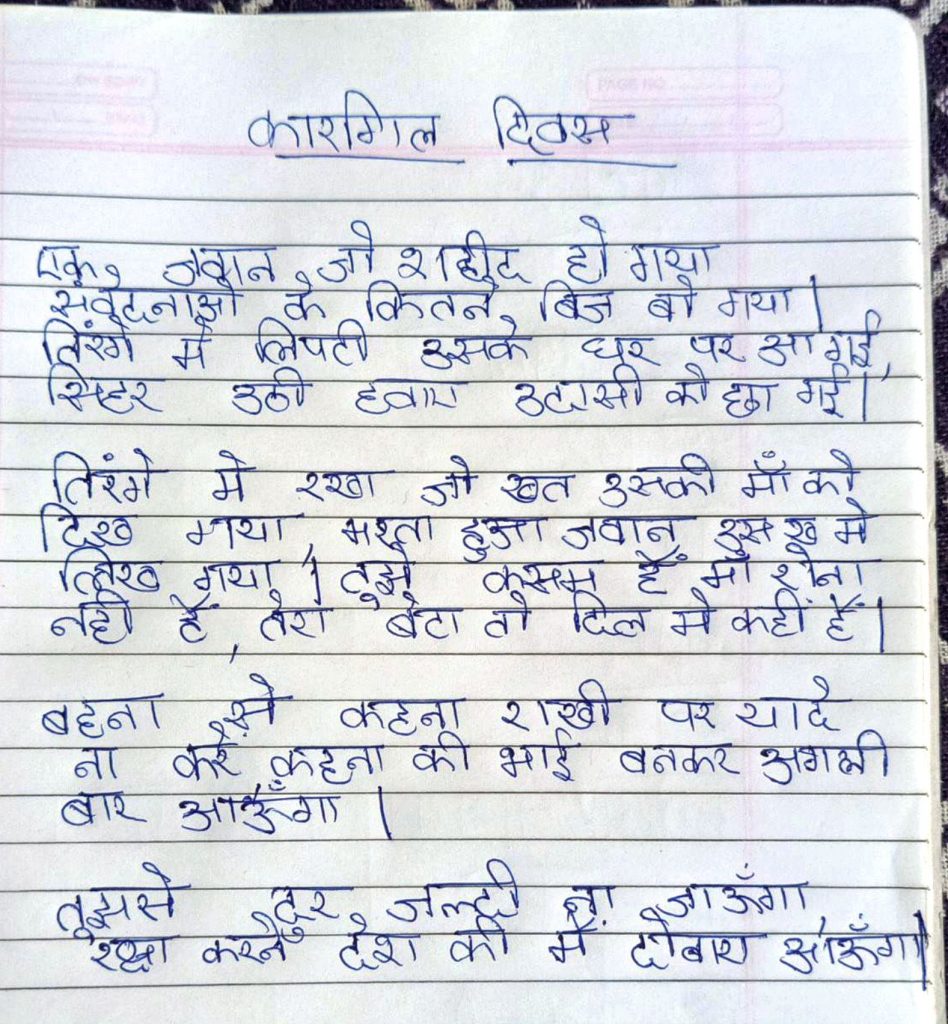 PAGE NO.
कारगिल दिवस
एक जवान जो शहीद हो गया
संवेदनाओ के कितने बिज बो गया |
तिरंगे मे लिपटी उसके घर पर आ गई,
सिहर उठी हवाए उदासी को छा गई |
तिरंगे मे रखा जो खत उसकी माँ को
दिख गाया, मरता हुआ जवान उस ख मे
लिख गया | तुझे कसम हैं माँ रोना
नही हैं, तेरा बेटा तो दिल मे कहीं हैं |
बहना से कहना राखी पर यादे
ना करे कहना की भाई बनकर अगली
बार आऊँगा |
तुझसे दुर जल्दी ना जाऊँगा
रक्षा करने देश की में दोबारा आंऊँगा |